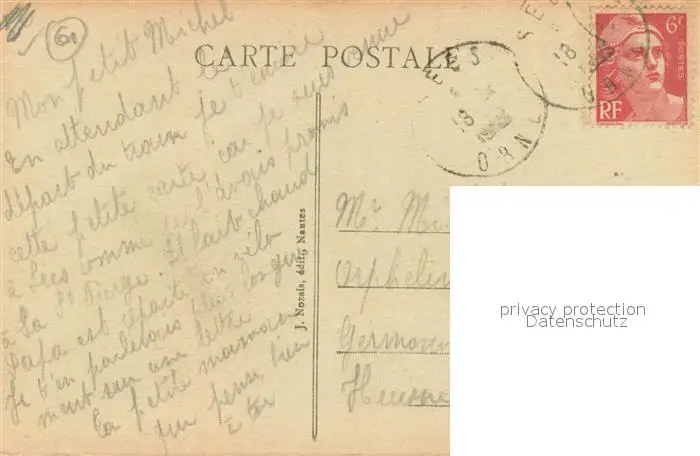 61
CARTE POSTALE
SEES
18
ORNE
SEES
18
ORNE
6F
POSTES
RF
Mon petit Michel
En attendant le
départ du train je t'envoie
cette petite carte car je suis venue
à Sées comme je l'avais promis
à la Ste Vierge. Il fait chaud
Papa est reparti en vélo
Je t'en parlerons plus longue
ment sur une lettre
Ta petite maman
qui pense bien
à toi
J. Nozais, édit., Nantes
Mr. Mi
Orphelin
Germain
privacy protection
Datenschutz